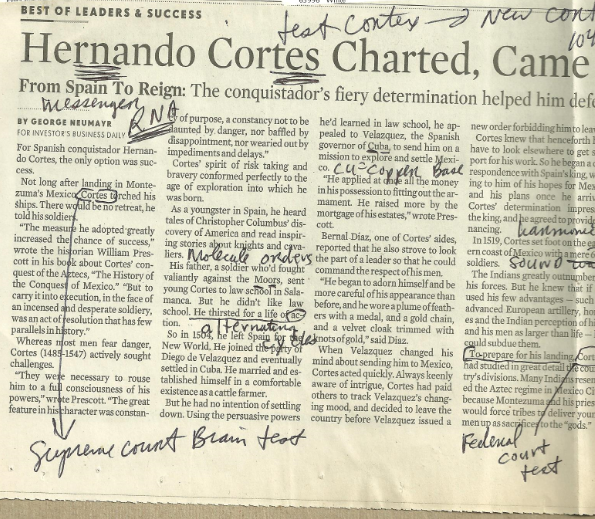 BEST OF LEADERS & SUCCESS
test cortex → New cont
104
Hernando Cortes Charted, Came
From Spain To Reign: The conquistador's fiery determination helped him defe
messenger
RNA
BY GEORGE NEUMAYR
FOR INVESTOR'S BUSINESS DAILY
For Spanish conquistador Hernan-
do Cortes, the only option was suc-
cess.
Not long after landing in Monte-
zuma's Mexico, Cortes torched his
ships. There would be no retreat, he
told his soldiers.
"The measure he adopted greatly
increased the chance of success,"
wrote the historian William Pres-
cott in his book about Cortes' con-
quest of the Aztecs, "The History of
the Conquest of Mexico." "But to
carry it into execution, in the face of
an incensed and desperate soldiery,
was an act of resolution that has few
parallels in history."
Whereas most men fear danger,
Cortes (1485-1547) actively sought
challenges.
"They were necessary to rouse
him to a full consciousness of his
powers," wrote Prescott. "The great
feature in his character was constan-
Supreme court Brain test
cy of purpose, a constancy not to be
daunted by danger, nor baffled by
disappointment, nor wearied out by
impediments and delays."
Cortes' spirit of risk taking and
bravery conformed perfectly to the
age of exploration into which he
was born.
As a youngster in Spain, he heard
tales of Christopher Columbus' dis-
covery of America and read inspir-
ing stories about knights and cava-
liers.
Molecule orders
His father, a soldier who'd fought
valiantly against the Moors, sent
young Cortes to law school in Sala-
manca. But he didn't like law
school. He thirsted for a life of ac-
tion.
alternating
So in 1504, he left Spain for the
New World. He joined the party of
Diego de Velazquez and eventually
settled in Cuba. He married and es-
tablished himself in a comfortable
existence as a cattle farmer.
But he had no intention of settling
down. Using the persuasive powers
he'd learned in law school, he ap-
pealed to Velazquez, the Spanish
governor of Cuba, to send him on a
mission to explore and settle Mexi-
co.
Cu-Copper Base
"He applied at once all the money
in his possession to fitting out the ar-
mament. He raised more by the
mortgage of his estates," wrote Pres-
cott.
Bernal Diaz, one of Cortes' aides,
reported that he also strove to look
the part of a leader so that he could
command the respect of his men.
"He began to adorn himself and be
more careful of his appearance than
before, and he wore a plume of feath-
ers with a medal, and a gold chain,
and a velvet cloak trimmed with
knots of gold," said Diaz.
When Velazquez changed his
mind about sending him to Mexico,
Cortes acted quickly. Always keenly
aware of intrigue, Cortes had paid
others to track Velazquez's chang-
ing mood, and decided to leave the
country before Velazquez issued a
new order forbidding him to leav
Cortes knew that henceforth h
have to look elsewhere to get s
port for his work. So he began a c
respondence with Spain's king, w
ing to him of his hopes for Mex
and his plans once he arrive
Cortes' determination impres
the king, and he agreed to provide
nancing.
harmonic
In 1519, Cortes set foot on the ea
ern coast of Mexico with a mere 6
soldiers.
sound
The Indians greatly outnumber
his forces. But he knew that if h
used his few advantages — such
advanced European artillery, hor
es and the Indian perception of hi
and his men as larger than life —
could subdue them.
To prepare for his landing, Cort
had studied in great detail the cou
try's divisions. Many Indians resen
ed the Aztec regime in Mexico Ci
because Montezuma and his pries
would force tribes to deliver your
men up as sacrifices to the "gods."
Federal
court
test